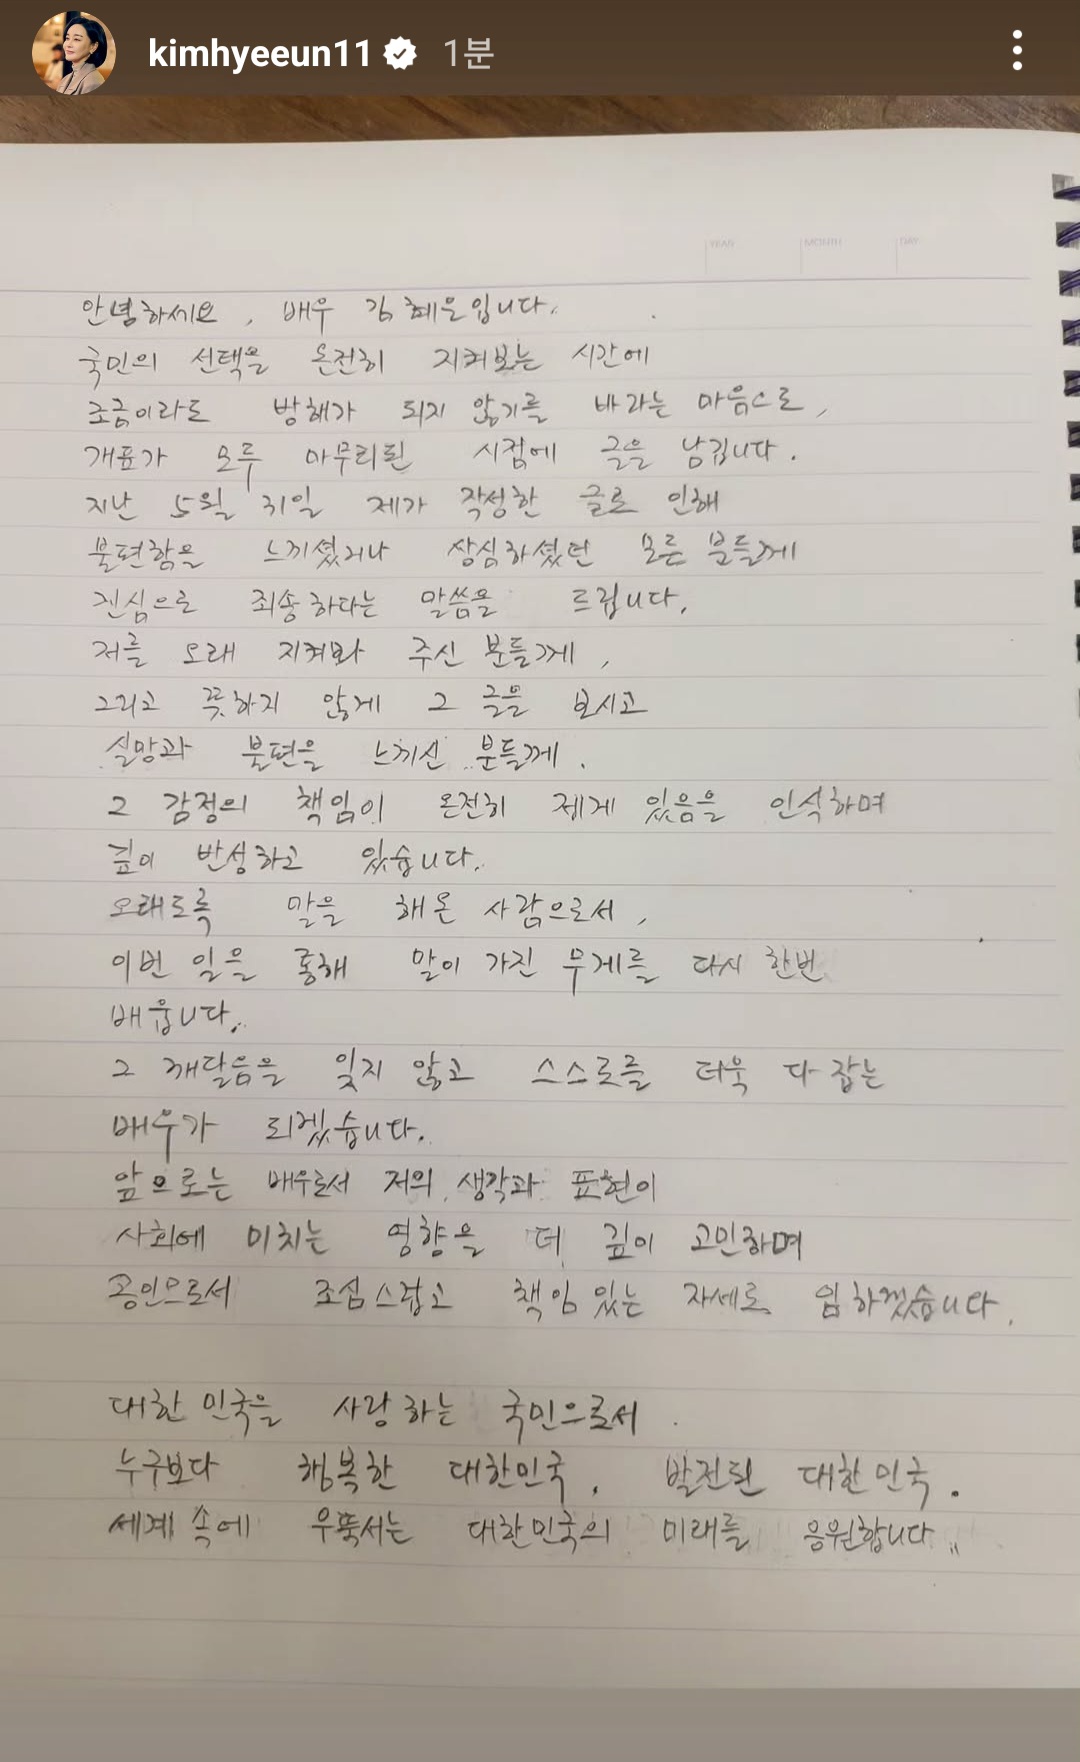 kimhyeeun11 1분
YEAR MONTH DAY
안녕하세요, 배우 김혜은입니다.
국민의 선택을 온전히 지켜보는 시간에
조금이라도 방해가 되지 않기를 바라는 마음으로,
개표가 모두 마무리된 시점에 글을 남깁니다.
지난 5월 31일 제가 작성한 글로 인해
불편함을 느끼셨거나 상심하셨던 모든 분들께
진심으로 죄송하다는 말씀을 드립니다.
저를 오래 지켜봐 주신 분들께,
그리고 뜻하지 않게 그 글을 보시고
실망과 불편을 느끼신 분들께.
그 감정의 책임이 온전히 제게 있음을 인식하며
깊이 반성하고 있습니다.
오래도록 말을 해온 사람으로서,
이번 일을 통해 말이 가진 무게를 다시 한번
배웁니다.
그 깨달음을 잊지 않고 스스로를 더욱 다잡는
배우가 되겠습니다.
앞으로는 배우로서 저의 생각과 표현이
사회에 미치는 영향을 더 깊이 고민하며
공인으로서 조심스럽고 책임 있는 자세로 임하겠습니다.
대한민국을 사랑하는 국민으로서
누구보다 행복한 대한민국, 발전된 대한민국.
세계 속에 우뚝서는 대한민국의 미래를 응원합니다..